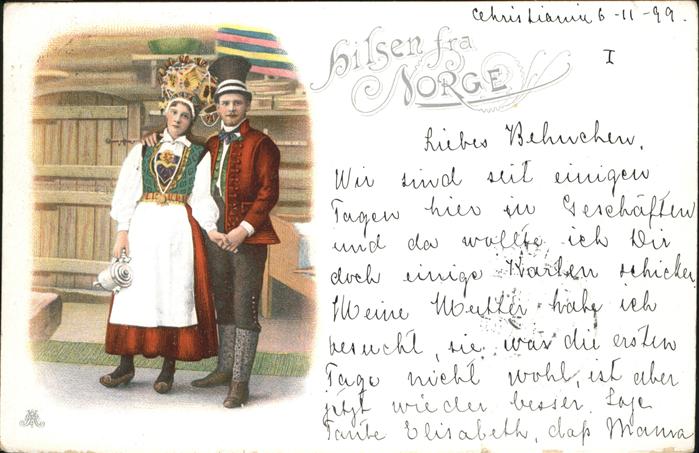 Christiania 6-11-99.
Hilsen fra
NORGE
I
Liebes Behnchen,
Wir sind seit einigen
Tagen hier in Geschäften
und da wollte ich Dir
doch einige Karten schicken
Meine Mutter habe ich
besucht, sie war die ersten
Tage nicht wohl, ist aber
jetzt wieder besser. Sage
Tante Elisabeth, daß Mama